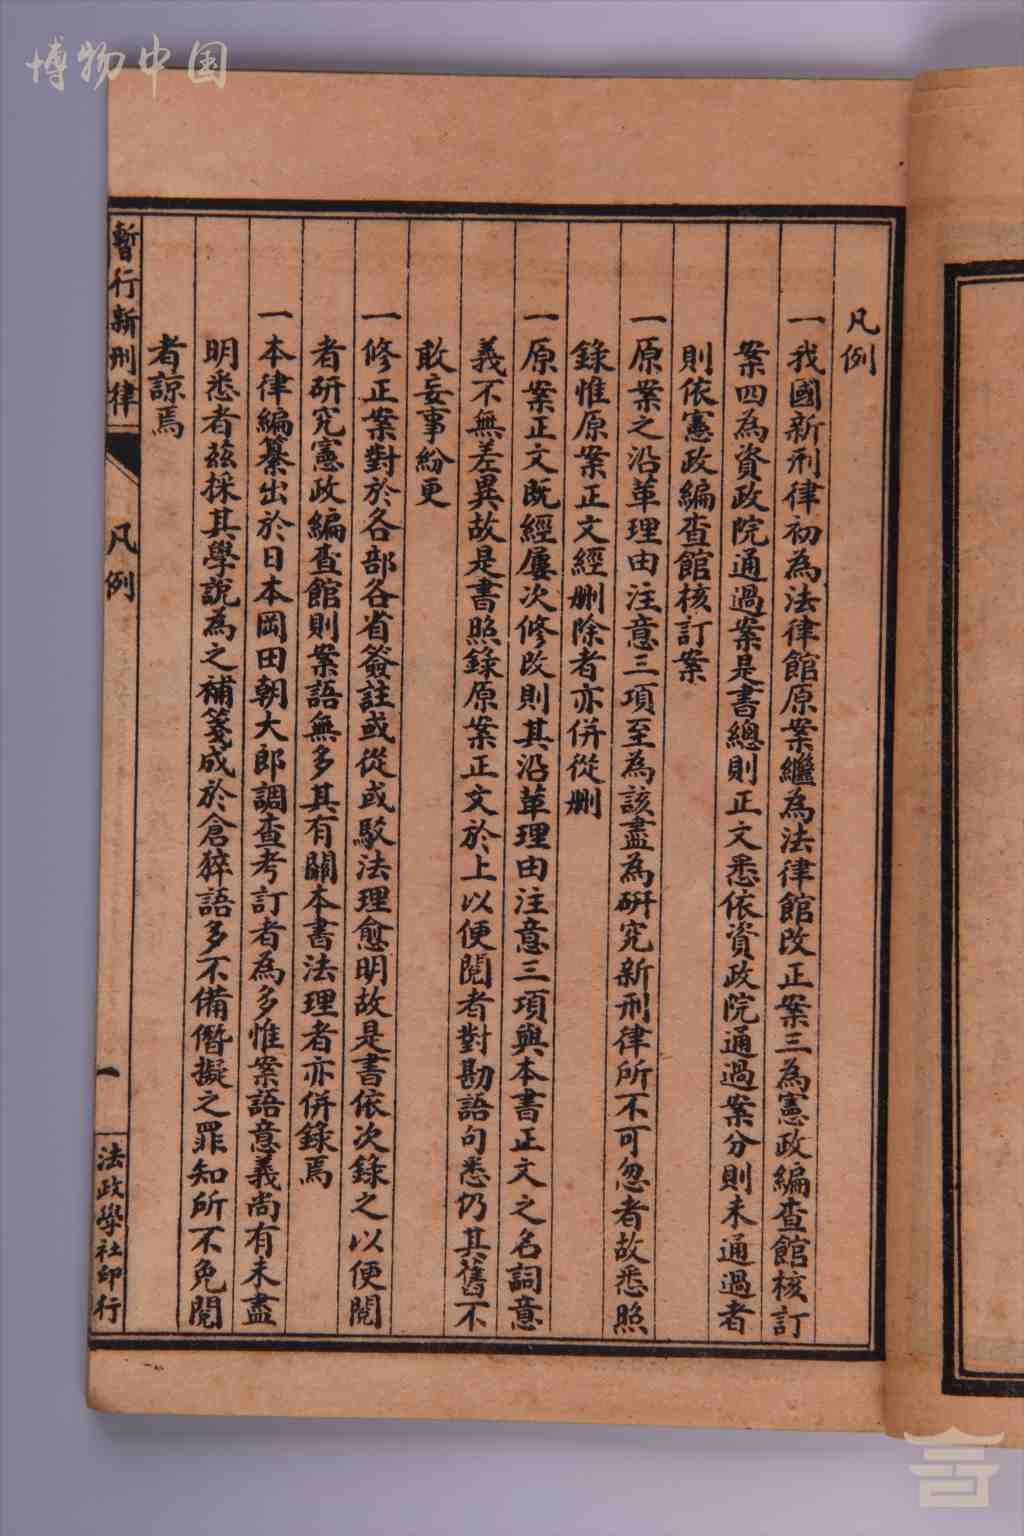 博物中国
凡例
一我國新刑律初為法律館原案繼為法律館改正案三為憲政編查館核訂
案四為資政院通過案是書總則正文悉依資政院通過案分則未通過者
則依憲政編查館核訂案
一原案之沿革理由注意三項至為該盡為研究新刑律所不可忽者故悉照
錄惟原案正文經刪除者亦併從刪
一原案正文既經屢次修改則其沿革理由注意三項與本書正文之名詞意
義不無差異故是書照錄原案正文於上以便閱者對勘語句悉仍其舊不
敢妄事紛更
一修正案對於各部各省簽註或從或駁法理愈明故是書依次錄之以便閱
者研究憲政編查館則案語無多其有關本書法理者亦併錄焉
一本律編纂出於日本岡田朝大郎調查考訂者為多惟案語意義尚有未盡
明悉者茲採其學說為之補箋成於倉猝語多不備僭擬之罪知所不免閱
者諒焉
暫行新刑律
凡例
一
法政學社印行